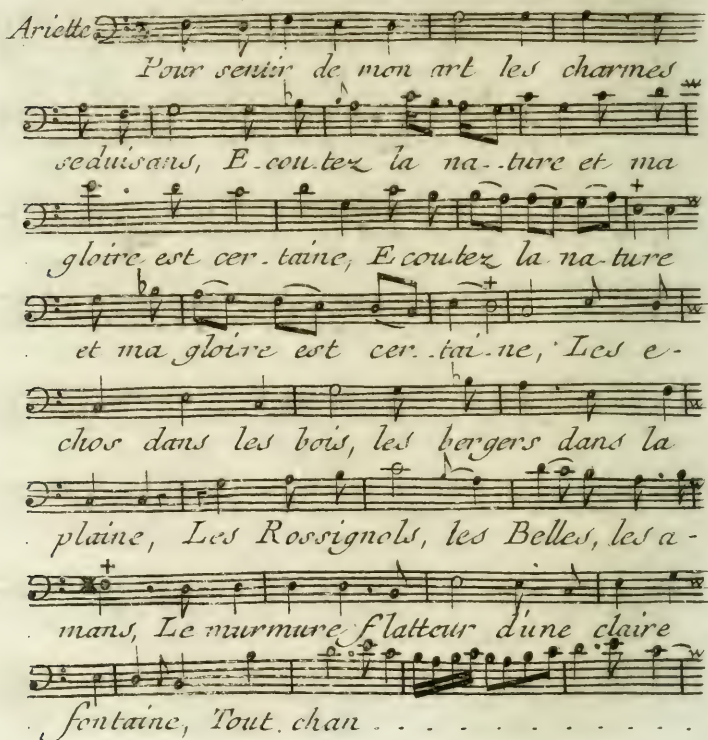 Ariette
Pour sentir de mon art les charmes
seduisans, E-cou-tez la na--ture et ma
gloire est cer-taine, Ecoutez la na-ture
et ma gloire est cer--tai-ne, Les e-
chos dans les bois, les bergers dans la
plaine, Les Rossignols, les Belles, les a-
mans, Le murmure flatteur d'une claire
fontaine, Tout chan . . . . . . . . .